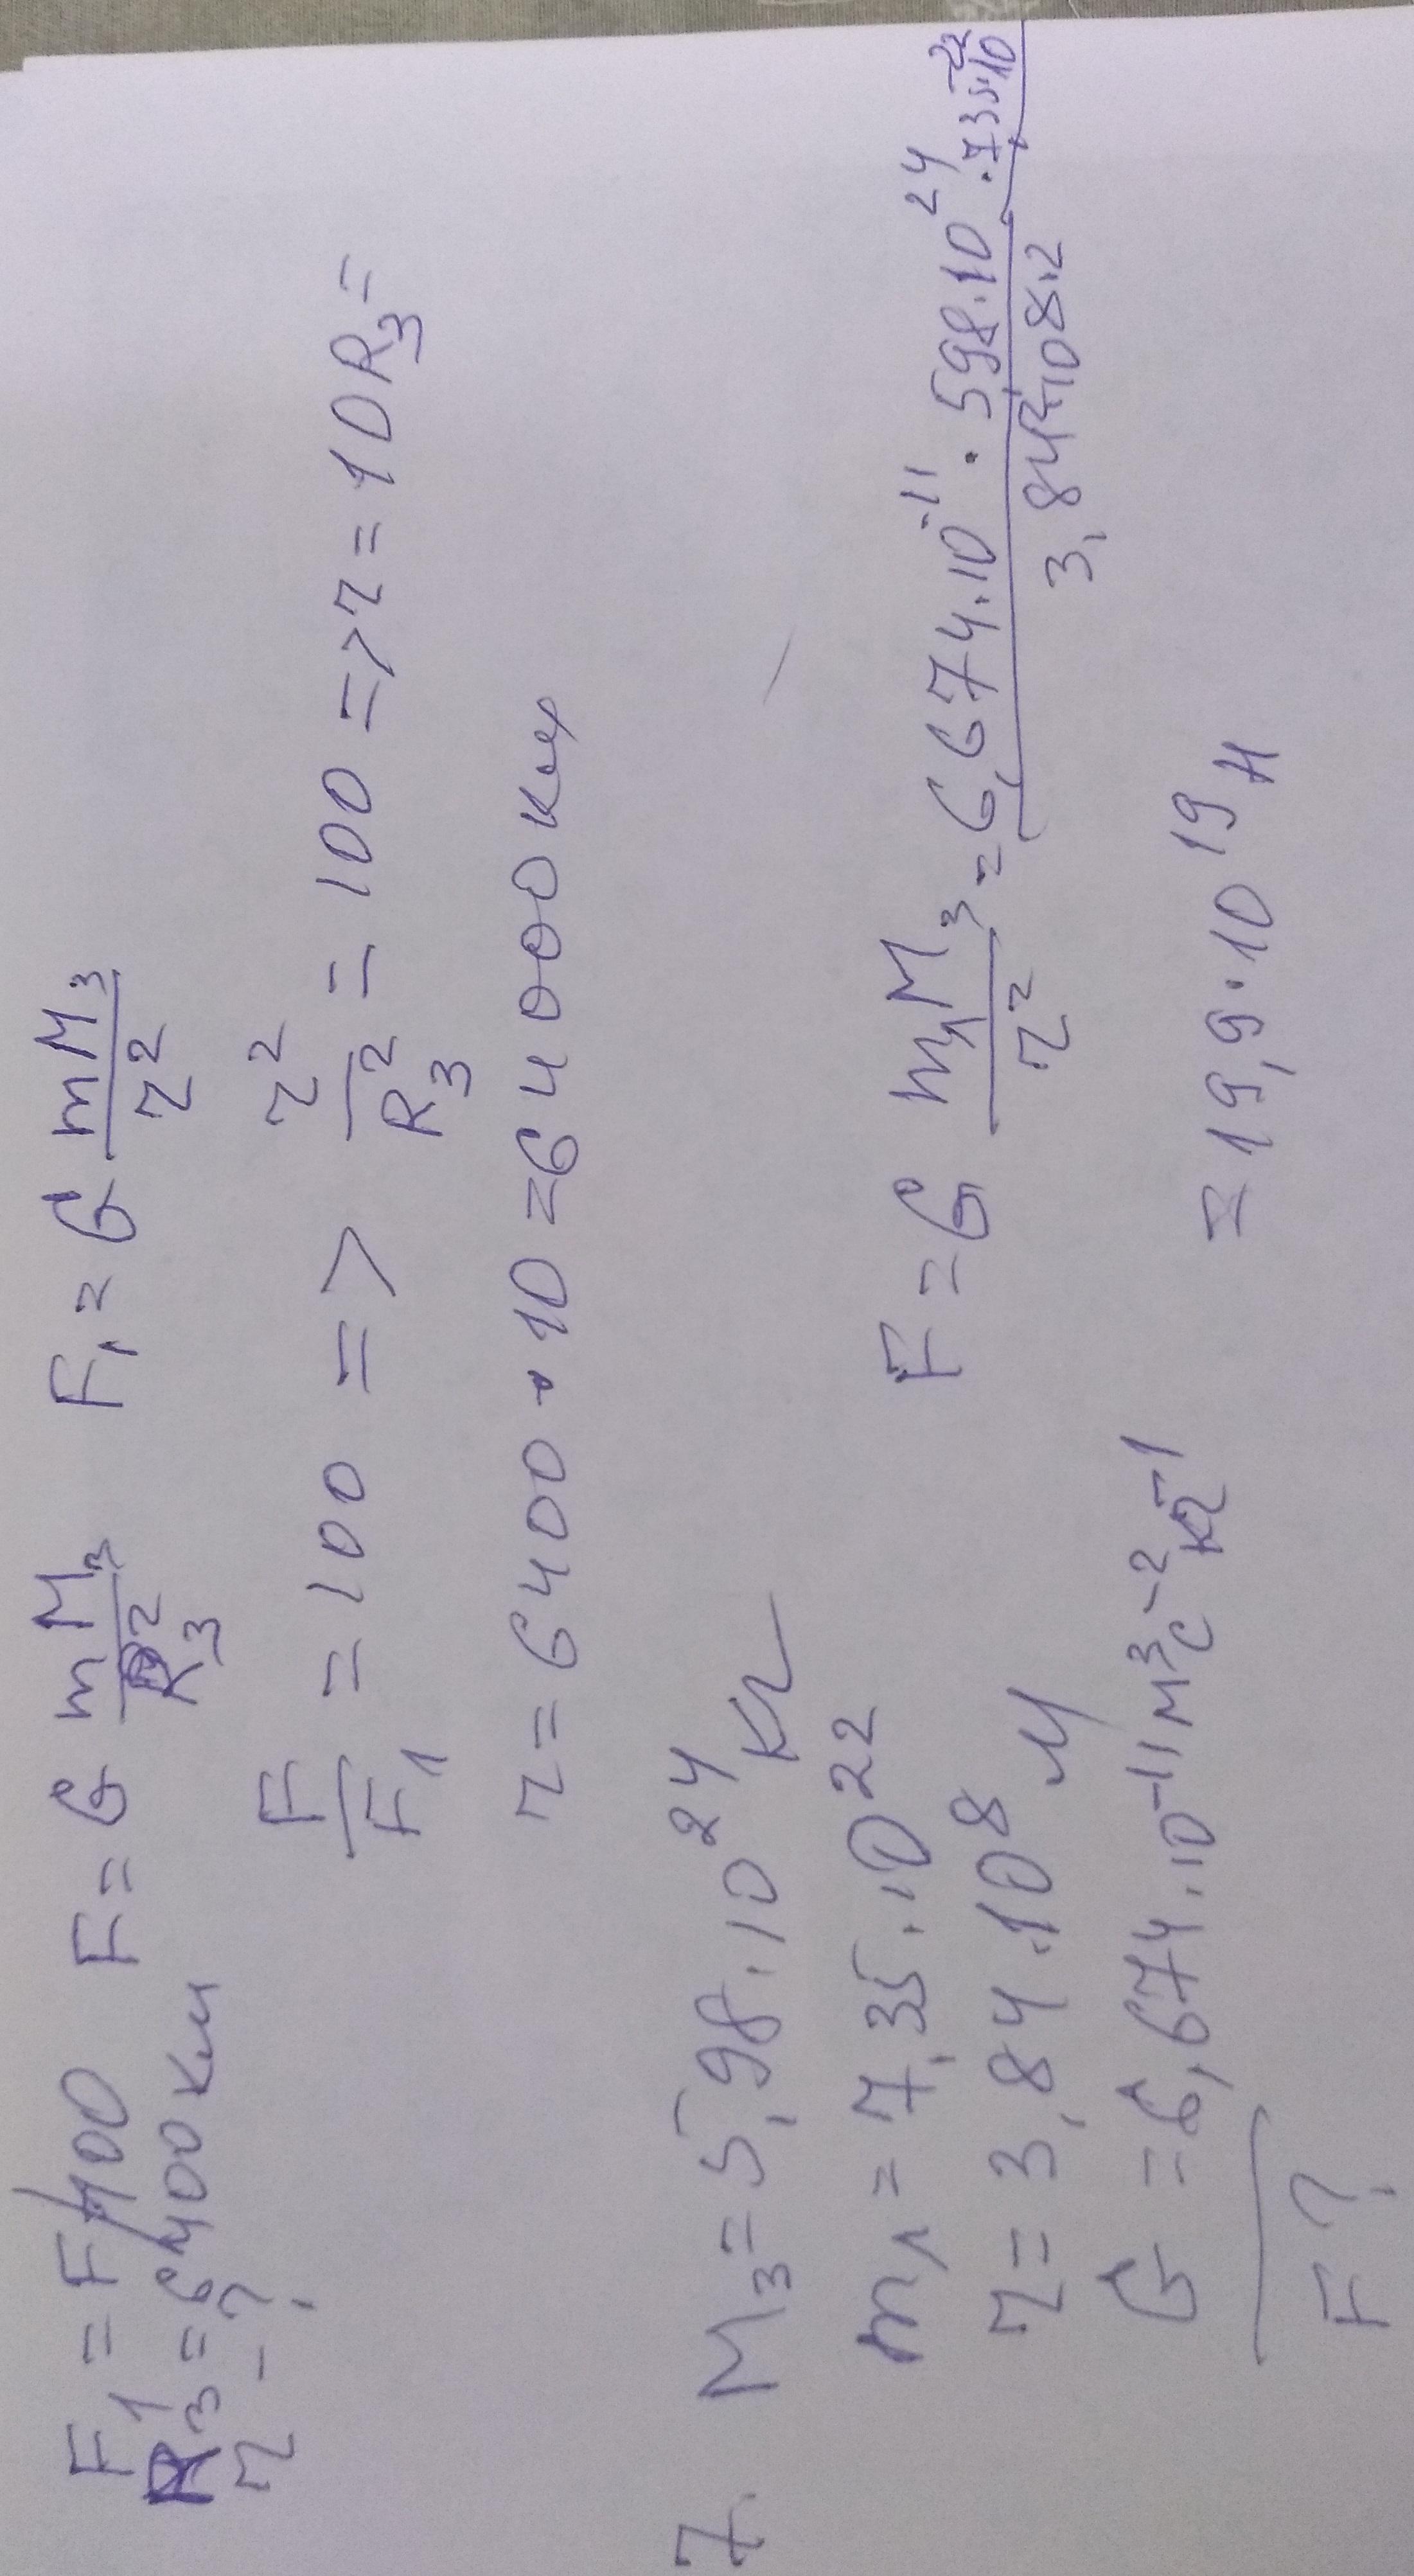 F₁ = F/100 F = G mM₃/R₃² F₁ = G mM₃/r²
R₃ = 6400 км
r - ?
F/F₁ = 100 => r²/R₃² = 100 => r = 10R₃ =
r = 6400 · 10 = 64000 км
7. M₃ = 5,98 · 10²⁴ кг
m₁ = 7,35 · 10²²
r = 3,84 · 10⁸ м
G = 6,674 · 10⁻¹¹ м³с⁻²кг⁻¹
F?
F = G m₁M₃/r² = 6,674 · 10⁻¹¹ · 5,98 · 10²⁴ · 7,35 · 10²²/3,84² · 10⁸·²
= 19,9 · 10¹⁹ Н